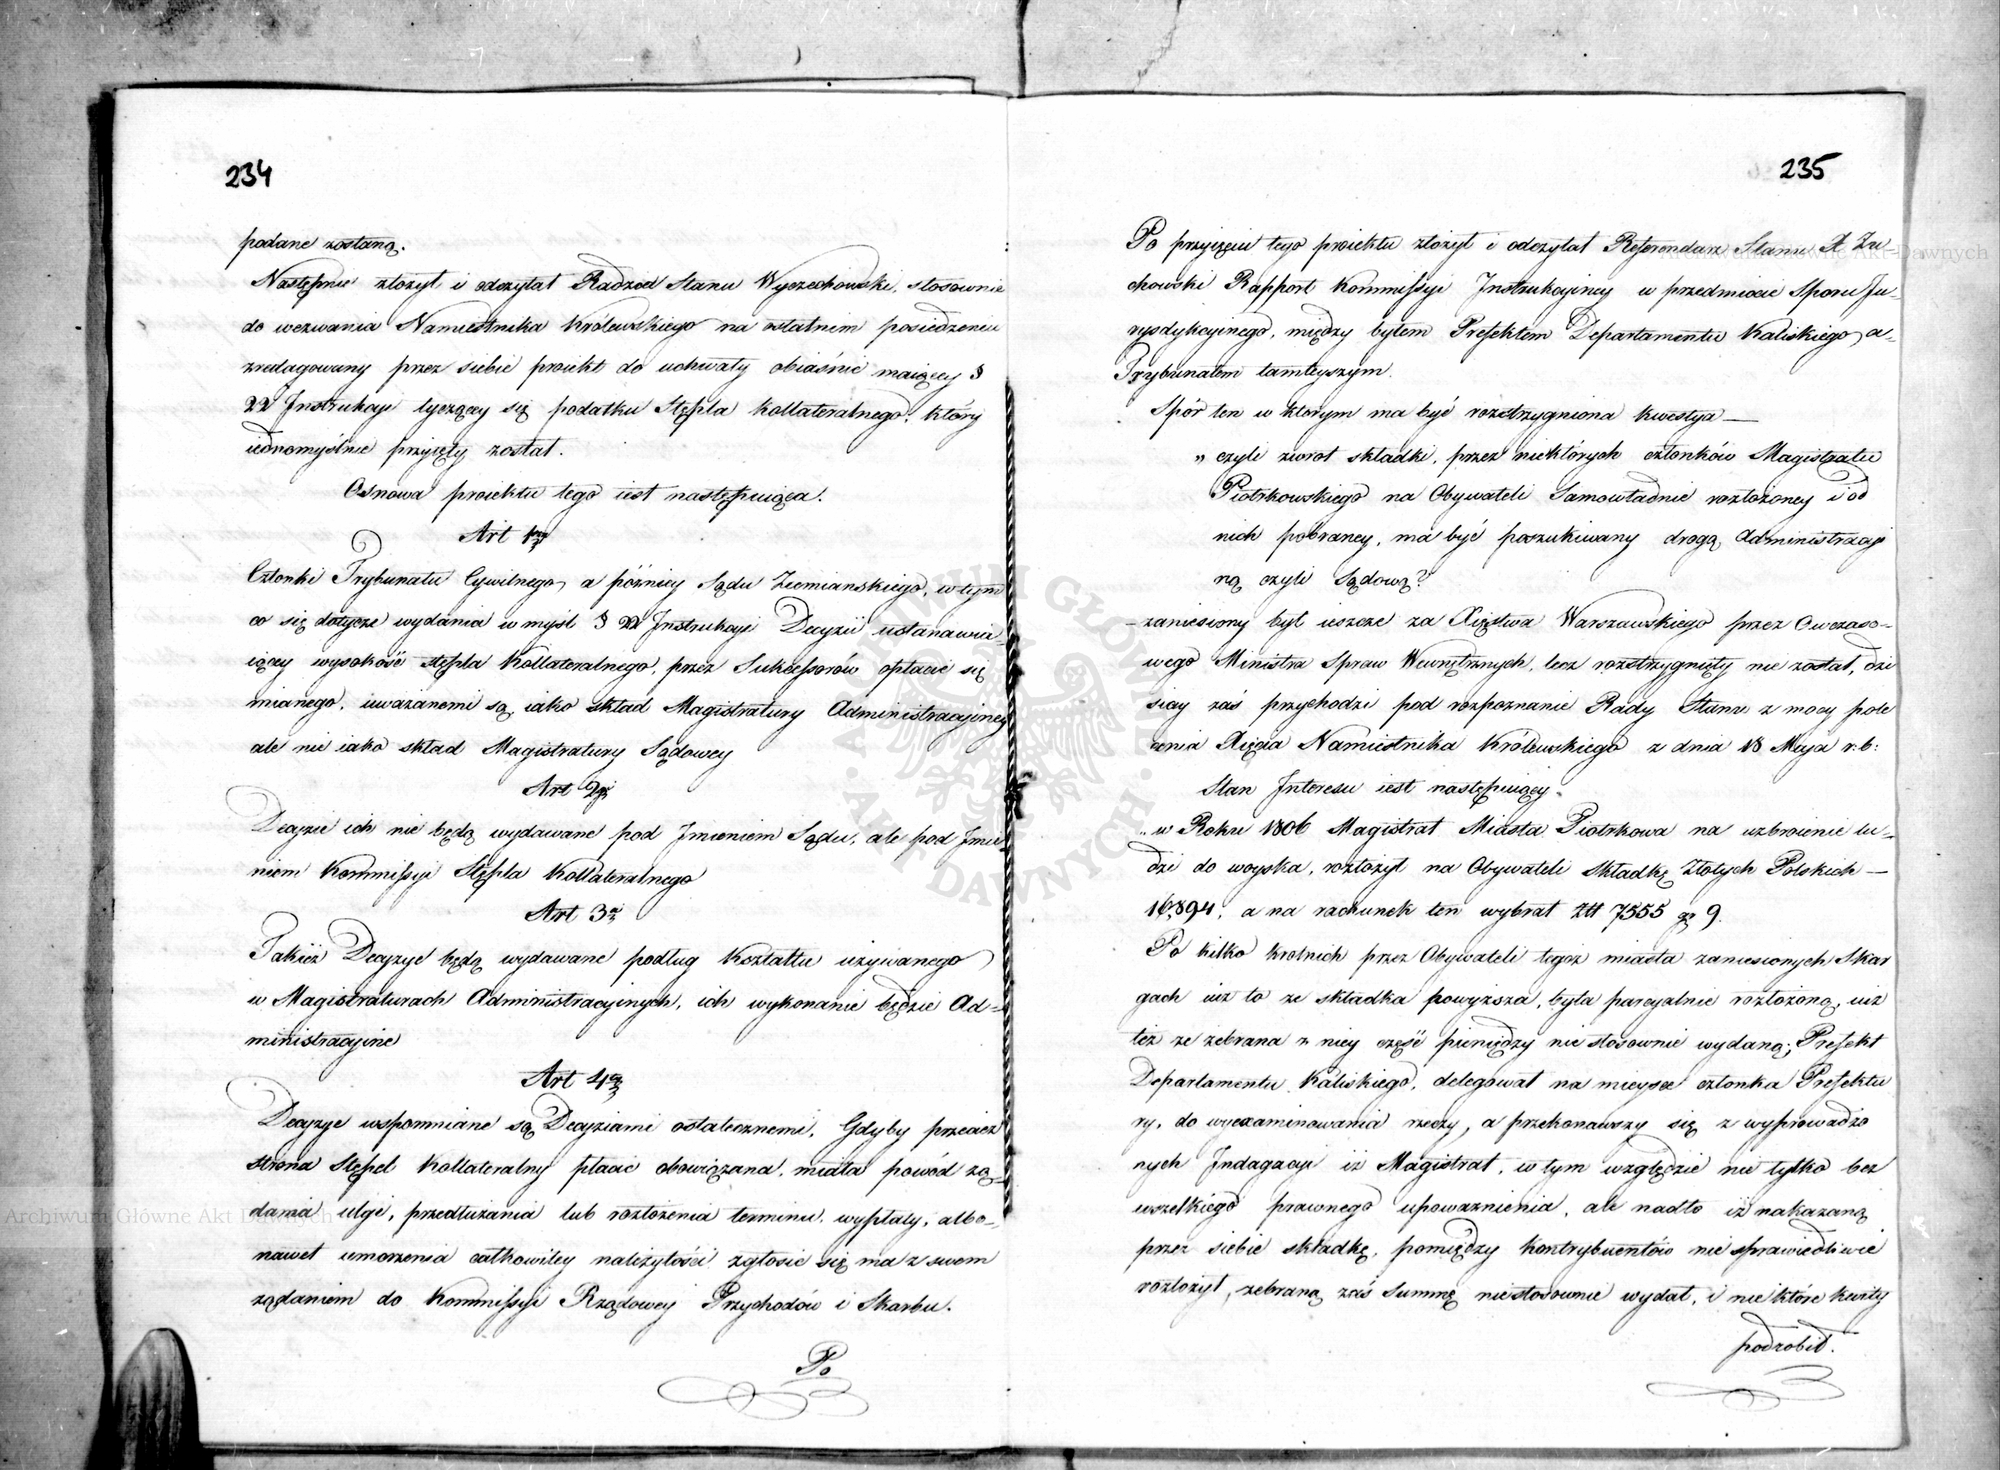 234
podane zostaną.
Następnie złożył i odczytał Radzca Stanu Wyczechowski, stosownie
do wezwania Namiestnika Królewskiego na ostatnim posiedzeniu
zredagowany przez siebie proiekt do uchwały obiaśnić maiącey §
22 Instrukcyi tyczącey się podatku Stępla Kollateralnego, który
iednomyślnie przyięty został.
Osnowa proiektu tego iest następuiąca.
Art 1szy
Członki Trybunału Cywilnego, a późniey Sądu Ziemianskiego, w tym
co się dotycze wydania w myśl § 22 Instrukcyi Decyzii ustanawia
iącey wysokość stępla Kollateralnego, przez Sukcessorów opłacić się
mianego, uważanemi są, iako skład Magistratury Administracyiney
ale nie iako skład Magistratury Sądowey
Art 2gi
Decyzie ich nie będą wydawane pod Imieniem Sądu, ale pod Imie
niem Kommissyi Stępla Kollateralnego
Art 3ci
Takież Decyzye będą wydawane podług Kształtu używanego
w Magistraturach Administracyinych, ich wykonanie będzie Ad-
ministracyine
Art 4ty
Decyzye wspomniane są Decyziami ostatecznemi. Gdyby przecież
strona Stępel Kollateralny płacić obowiązana, miała powód żą-
dania ulgi, przedłużania lub rozłożenia terminu, wypłaty, albo-
nawet umorzenia całkowitey należytości zgłosić się ma z swem
żądaniem do Kommissyi Rządowey Przychodów i Skarbu.
Po
235
Po przyięciu tego proiektu złożył i odczytał Referendarz Stanu X Zu
chowski Rapport Kommissyi Instrukcyiney w przedmiocie Sporu Ju-
rysdykcyinego, między byłem Prefektem Departamentu Kaliskiego a-
Trybunałem tamteyszym.
Spór ten w którym ma być rozstrzygniona kwestya —
„ czyli zwrot składki, przez niektórych członków Magistratu
Piotrkowskiego na Obywateli Samowładnie rozłożoney i od
nich pobraney, ma być poszukiwany drogą Administracyi
ną czyli Sądową?
- zaniesiony był ieszcze za Xięstwa Warszawskiego przez Owczaso-
wego Ministra Spraw Wewnętrznych, lecz rozstrzygnięty nie został, dzi
siay zaś przychodzi pod rozpoznanie Rady Stanu z mocy pole
cenia Xięcia Namiestnika Królewskiego z dnia 18 Maja r: b:
Stan Interesu iest następuiący.
„ w Roku 1806 Magistrat Miasta Piotrkowa na uzbroienie lu-
dzi do woyska, rozłożył na Obywateli Składkę Złotych Polskich —
16,894, a na rachunek ten wybrał Złt 7555 gr 9.
Po kilko krotnich przez Obywateli tegoż miasta zaniesionych Skar
gach iuż to że składka powyższa, była parcyalnie rozłożoną, iuż
też że zebrana z niey część pieniędzy nie stosownie wydaną; Prefekt
Departamentu Kaliskiego, delegował na mieysce członka Prefektu
ry, do wyexaminowania rzeczy, a przekonawszy się z wyprowadzo
nych Indagacyi iż Magistrat, w tym względzie nie tylko bez
wszelkiego prawnego upoważnienia, ale nadto iż nakazaną
przez siebie składkę, pomiędzy Kontrybuentów nie sprawiedliwie
rozłożył, zebraną zaś Summę niestosownie wydał, i nie które kwity
podrobił.
Archiwum Główne Akt Dawnych
Archiwum Główne Akt Dawnych
ARCHIWUM GŁÓWNE AKT DAWNYCH